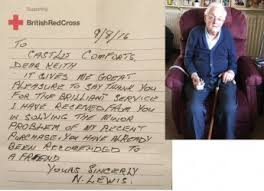 Supporting
BritishRedCross
9/8/16
TO
CASTLE COMFORTS,
DEAR KEITH
IT GIVES ME GREAT
PLEASURE TO SAY THANK YOU
FOR THE BRILLIANT SERVICE
I HAVE RECEIVED FROM YOU
IN SOLVING THE MINOR
PROBLEM OF MY RECENT
PURCHASE. YOU HAVE ALREADY
BEEN RECOMMENDED TO
A FRIEND
YOURS SINCERELY
N. LEWIS.